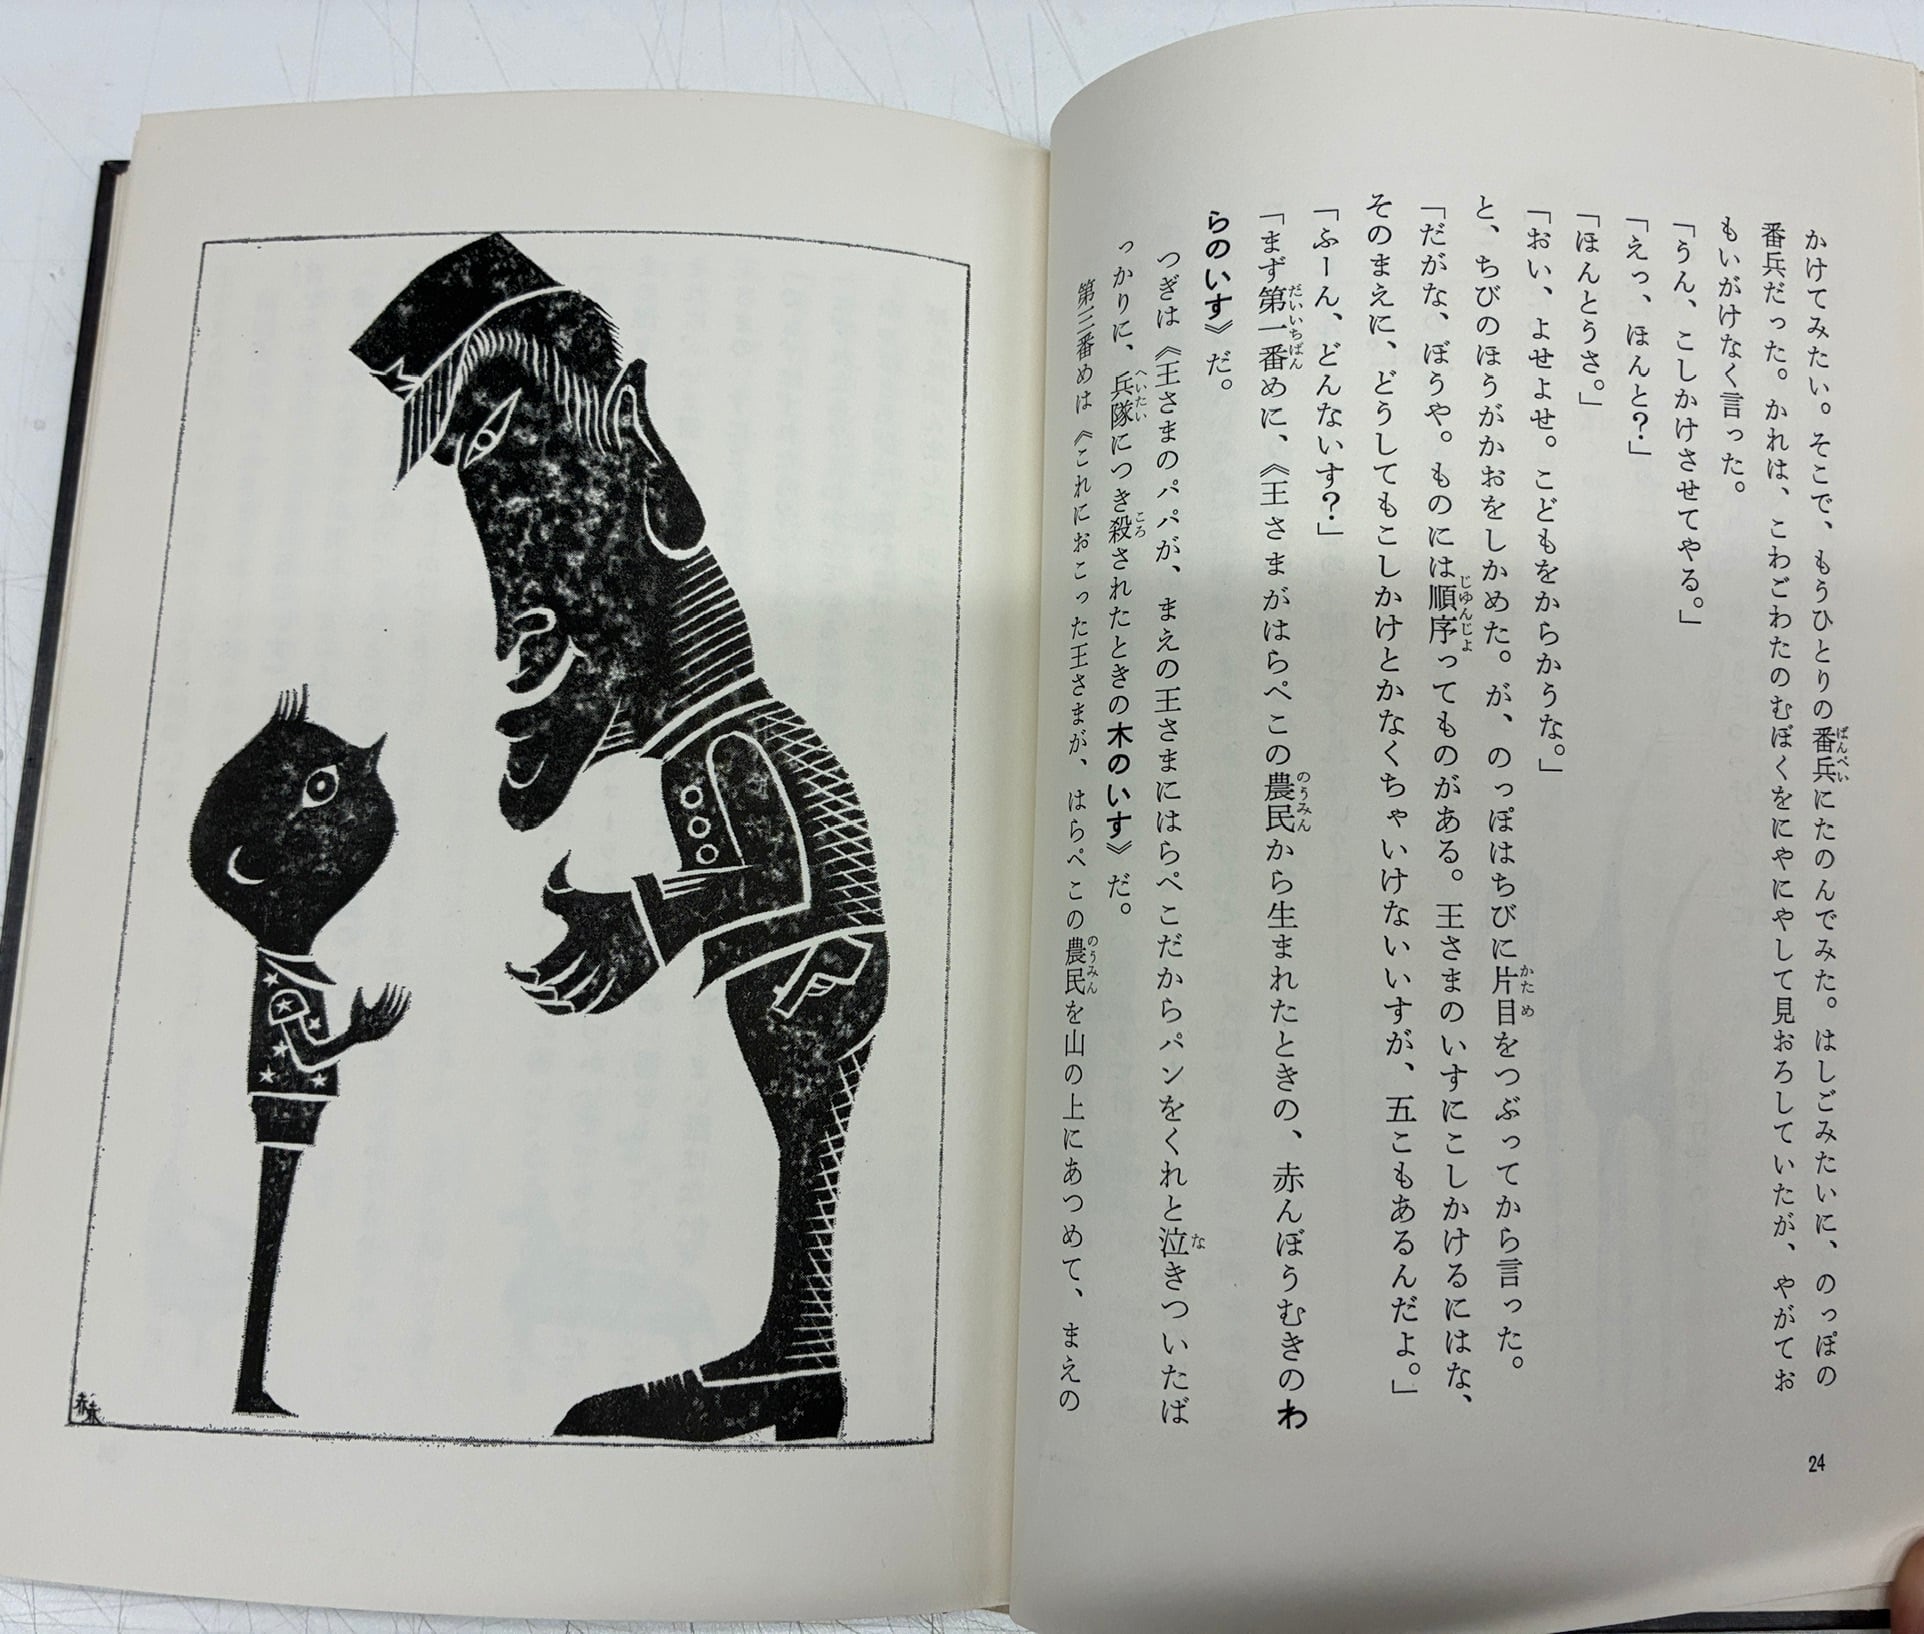 かけてみたい。そこで、もうひとりの番兵にたのんでみた。はしごみたいに、のっぽの
番兵だった。かれは、こわごわたのむぼくをにやにやして見おろしていたが、やがてお
もいがけなく言った。
「うん、こしかけさせてやる。」
「えっ、ほんと？」
「ほんとうさ。」
「おい、よせよせ。こどもをからかうな。」
と、ちびのほうがかおをしかめた。が、のっぽはちびに片目をつぶってから言った。
「だがな、ぼうや。ものには順序ってものがある。王さまのいすにこしかけるにはな、
そのまえに、どうしてもこしかけとかなくちゃいけないいすが、五こもあるんだよ。」
「ふーん、どんないす？」
「まず第一番めに、《王さまがはらぺこの農民から生まれたときの、赤んぼうむきのわ
らのいす》だ。
つぎは《王さまのパパが、まえの王さまにはらぺこだからパンをくれと泣きついたば
っかりに、兵隊につき殺されたときの木のいす》だ。
第三番めは《これにおこった王さまが、はらぺこの農民を山の上にあつめて、まえの
24